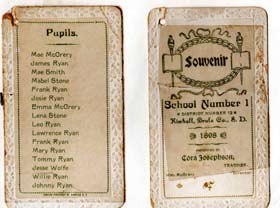 Pupils.
Mae McCrery
James Ryan
Mae Smith
Mabel Stone
Frank Ryan
Josie Ryan
Emma McCrery
Lena Stone
Leo Ryan
Lawrence Ryan
Frank Ryan
Mary Ryan
Tommy Ryan
Jesse Wolfe
Willie Ryan
Johnny Ryan.
Souvenir
School Number 1
DISTRICT NUMBER 12
Kimball, Brule Co., S. D.
1898
PRESENTED BY
Cora Josephson,
TEACHER.
McCrery
Director